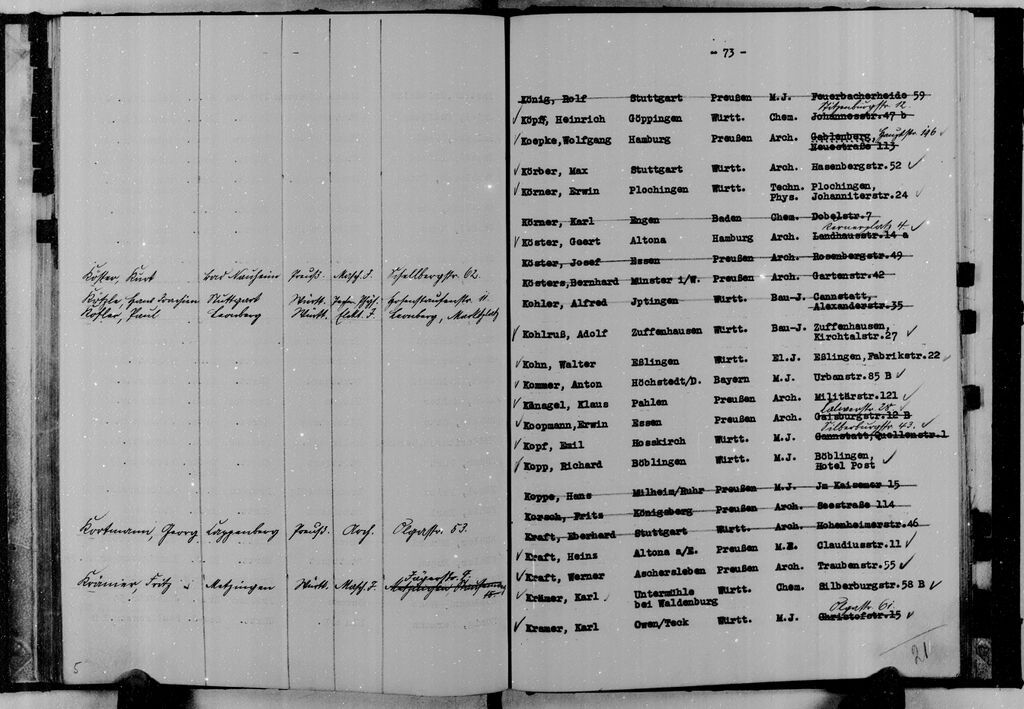 Köster, Kurt Bad Nauheim Preuß. Masch. J. Schellbergstr. 62.
Kötzle, Hans Joachim Stuttgart Württ. Hohenstaufenstr. 11
Kofler, Paul Leonberg Württ. Elekt. J. Leonberg, Marktplatz
Kortmann, Georg Lappenberg Preuß. Arch. Olgastr. 53.
Jägerstr.
Krämer, Fritz Metzingen Württ. Masch. J. Metzingen
5
- 73 -
König, Rolf Stuttgart Preußen M.J. Feuerbacherheide 59
Köpff, Heinrich Göppingen Württ. Chem. Johannesstr.47 b
Koepke,Wolfgang Hamburg Preußen Arch. Gablenberg, Hauptstr. 196
Neuestraße 113
Körber, Max Stuttgart Württ. Arch. Hasenbergstr.52
Körner, Erwin Plochingen Württ. Techn. Plochingen,
Phys. Johanniterstr.24
Körner, Karl Engen Baden Chem. Dobelstr.7
Kernerplatz 4
Köster, Geert Altona Hamburg Arch. Landhausstr.14 a
Köster, Josef Essen Preußen Arch. Rosenbergstr.49
Kösters,Bernhard Münster i/W. Preußen Arch. Gartenstr.42
Kohler, Alfred Jptingen Württ. Bau-J. Cannstatt,
Alexanderstr.35
Kohlruß, Adolf Zuffenhausen Württ. Bau-J. Zuffenhausen,
Kirchtalstr.27
Kohn, Walter Eßlingen Württ. El.J. Eßlingen,Fabrikstr.22
Kommer, Anton Höchstedt/D. Bayern M.J. Urbanstr.85 B
Känagel, Klaus Pahlen Preußen Arch. Militärstr.121
Calwerstr. 28
Koopmann,Erwin Essen Preußen Arch. Gaisburgstr.12 B
Silberburgstr. 43.
Kopf, Emil Hosskirch Württ. M.J. Cannstatt,Quellenstr.1
Kopp, Richard Böblingen Württ. M.J. Böblingen,
Hotel Post
Koppe, Hans Milheim/Ruhr Preußen M.J. Jm Kaisemer 15
Korsch, Fritz Königsberg Preußen Arch. Seestraße 114
Kraft, Eberhard Stuttgart Württ. Arch. Hohenheimerstr.46
Kraft, Heinz Altona a/E. Preußen M.E. Claudiusstr.11
Kraft, Werner Aschersleben Preußen Arch. Traubenstr.55
Krämer, Karl Untermühle Württ. Chem. Silberburgstr.58 B
bei Waldenburg
Olgastr. 61
Kramer, Karl Owen/Teck Württ. M.J. Christofstr.15
21